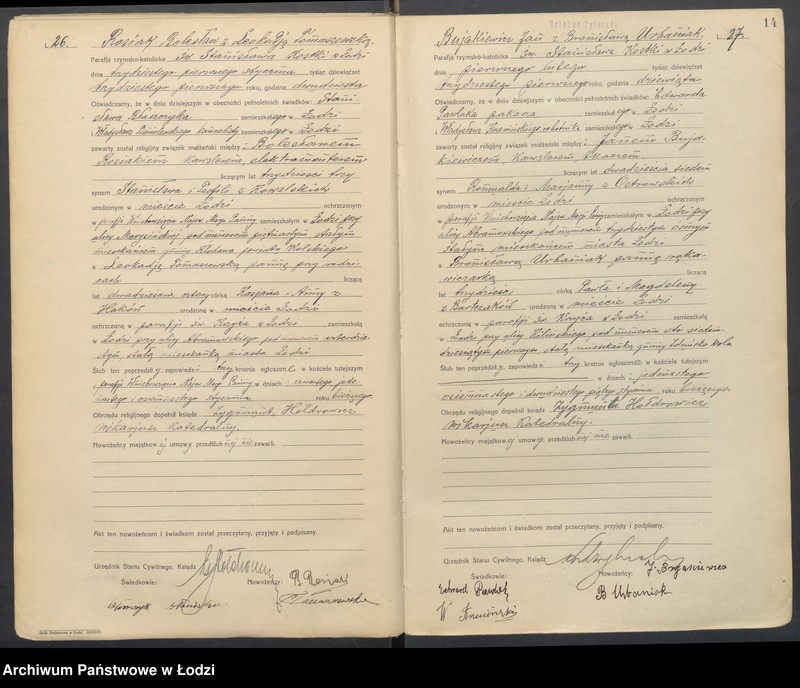 26. Rosiak Bolesław z Leokadją Tomaszewską.
Parafja rzymsko-katolicka Św. Stanisława Kostki w Łodzi
dnia trzydziestego pierwszego stycznia tysiąc dziewięćset
trzydziestego pierwszego roku, godzina dwunasta
Oświadczamy, że w dniu dzisiejszym w obecności pełnoletnich świadków: Stani-
sława zamieszkałego w Łodzi
Władysława zamieszkałego w Łodzi
zawarty został religijny związek małżeński między: Bolesławem
Rosiakiem kawalerem, elektromonterem
liczącym lat trzydzieści trzy
synem Stanisława i Teofili z Kowalskich
urodzonym w mieście Łodzi ochrzczonym
w parafji Wniebowzięcia Najśw. Marji Panny, zamieszkałym w Łodzi przy
ulicy Marysińskiej pod numerem piętnastym stałym
mieszkańcem gminy Kłodawa powiatu Kolskiego
a Leokadją Tomaszewską panną przy rodzi-
cach liczącą
lat dwadzieścia córką Kacpra i Anny z
urodzoną w mieście Łodzi
ochrzczoną w parafji św. Krzyża w Łodzi zamieszkałą
w Łodzi przy ulicy Abramowskiego pod numerem czterdzie-
stym stałą mieszkanką miasta Łodzi
Ślub ten poprzedziły zapowiedzi trzy krotnie ogłoszone w kościele tutejszym
i parafji Wniebowzięcia Najśw. Marji Panny w dniach: czwartego, jede-
nastego i osiemnastego stycznia roku bieżącego.
Obrzędu religijnego dopełnił ksiądz Zygmunt Hołdrowicz
wikarjusz Katedralny.
Nowożeńcy majątkowej umowy przedślubnej nie zawarli.
Akt ten nowożeńcom i świadkom został przeczytany, przyjęty i podpisany.
Urzędnik Stanu Cywilnego, Ksiądz
Świadkowie: Nowożeńcy: B. Rosiak
Tomaszewska
14
Bujakiewicz Jan z Bronisławą Urbaniak. 27.
Parafja rzymsko-katolicka Św. Stanisława Kostki w Łodzi
dnia pierwszego lutego tysiąc dziewięćset
trzydziestego pierwszego roku, godzina dziewiąta
Oświadczamy, że w dniu dzisiejszym w obecności pełnoletnich świadków: Edwarda
Pawlaka zamieszkałego w Łodzi
Władysława robotnika zamieszkałego w Łodzi
zawarty został religijny związek małżeński między: Janem Buja-
kiewiczem, kawalerem, tkaczem
liczącym lat dwadzieścia siedem
synem Romualda i Marjanny z Ostrowskich
urodzonym w mieście Łodzi ochrzczonym
w parafji Wniebowzięcia Najśw. Marji Panny zamieszkałym w Łodzi przy
ulicy Abramowskiego pod numerem trzydziestym ósmym
stałym mieszkańcem miasta Łodzi
a Bronisławą Urbaniak panną ręka-
wiczarką liczącą
lat trzydzieści córką Pawła i Magdaleny
z Bartczaków urodzoną w mieście Łodzi
ochrzczoną w parafji św. Krzyża w Łodzi zamieszkałą
w Łodzi przy ulicy Kilińskiego pod numerem sto siedem-
dziesiątym pierwszym stałą mieszkanką gminy Zduńska Wola
Ślub ten poprzedziły zapowiedzi trzy krotnie ogłoszone w kościele tutejszym
w dniach: jedenastego
osiemnastego i dwudziestego piątego stycznia roku bieżącego.
Obrzędu religijnego dopełnił ksiądz Zygmunt Hołdrowicz
wikarjusz Katedralny.
Nowożeńcy majątkowej umowy przedślubnej nie zawarli.
Akt ten nowożeńcom i świadkom został przeczytany, przyjęty i podpisany.
Urzędnik Stanu Cywilnego, Ksiądz
Świadkowie: Nowożeńcy: J. Bujakiewicz
Edward Pawlak B Urbaniak
W
Archiwum Państwowe w Łodzi